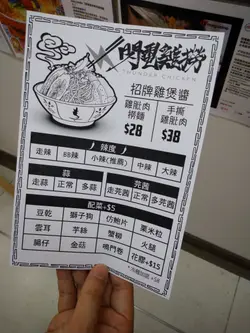 閃電雞撈
THUNDER CHICKEN
招牌雞煲醬
雞肶肉
撈麵
$28
手撕
雞肶肉
$38
辣度
走辣 BB辣 小辣(推薦) 中辣 大辣
蒜
走蒜 正常 多蒜
芫茜
走芫茜 正常 多芫茜
配菜+$5
豆乾 獅子狗 仿鮑片 粟米粒
雲耳 芋絲 蟹柳 火腿
腸仔 金菇 鳴門卷 花膠+$15